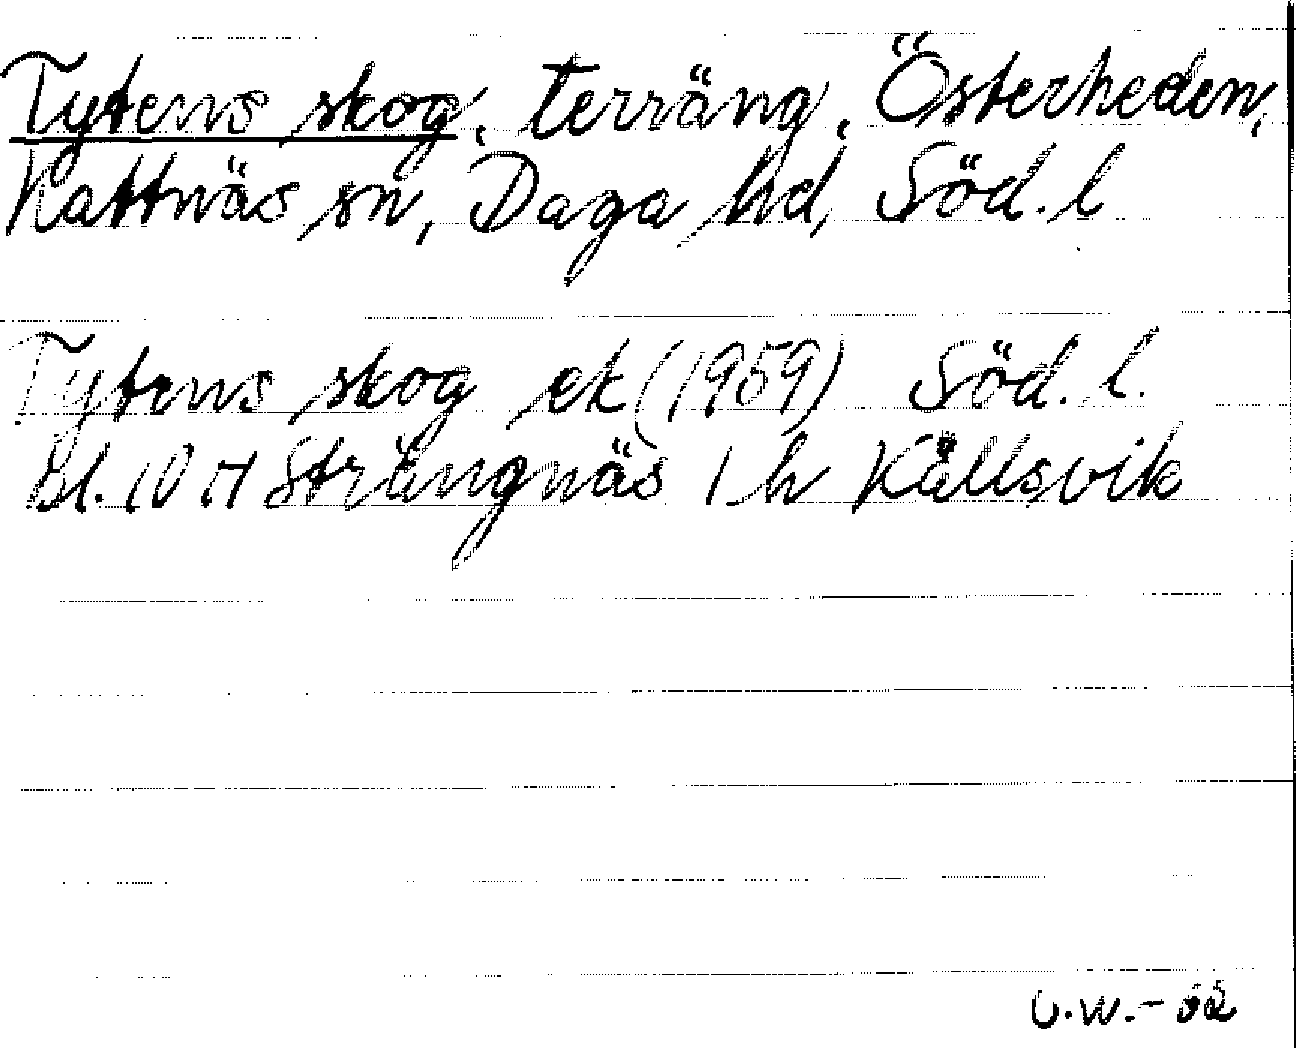 Tytens skog, terräng, Österheden,
Kattnäs sn, Daga hd, Söd. l
Tytens skog ek (1959) Söd. l.
bl. 10 H Strängnäs 1 h Källsvik
U.W.-